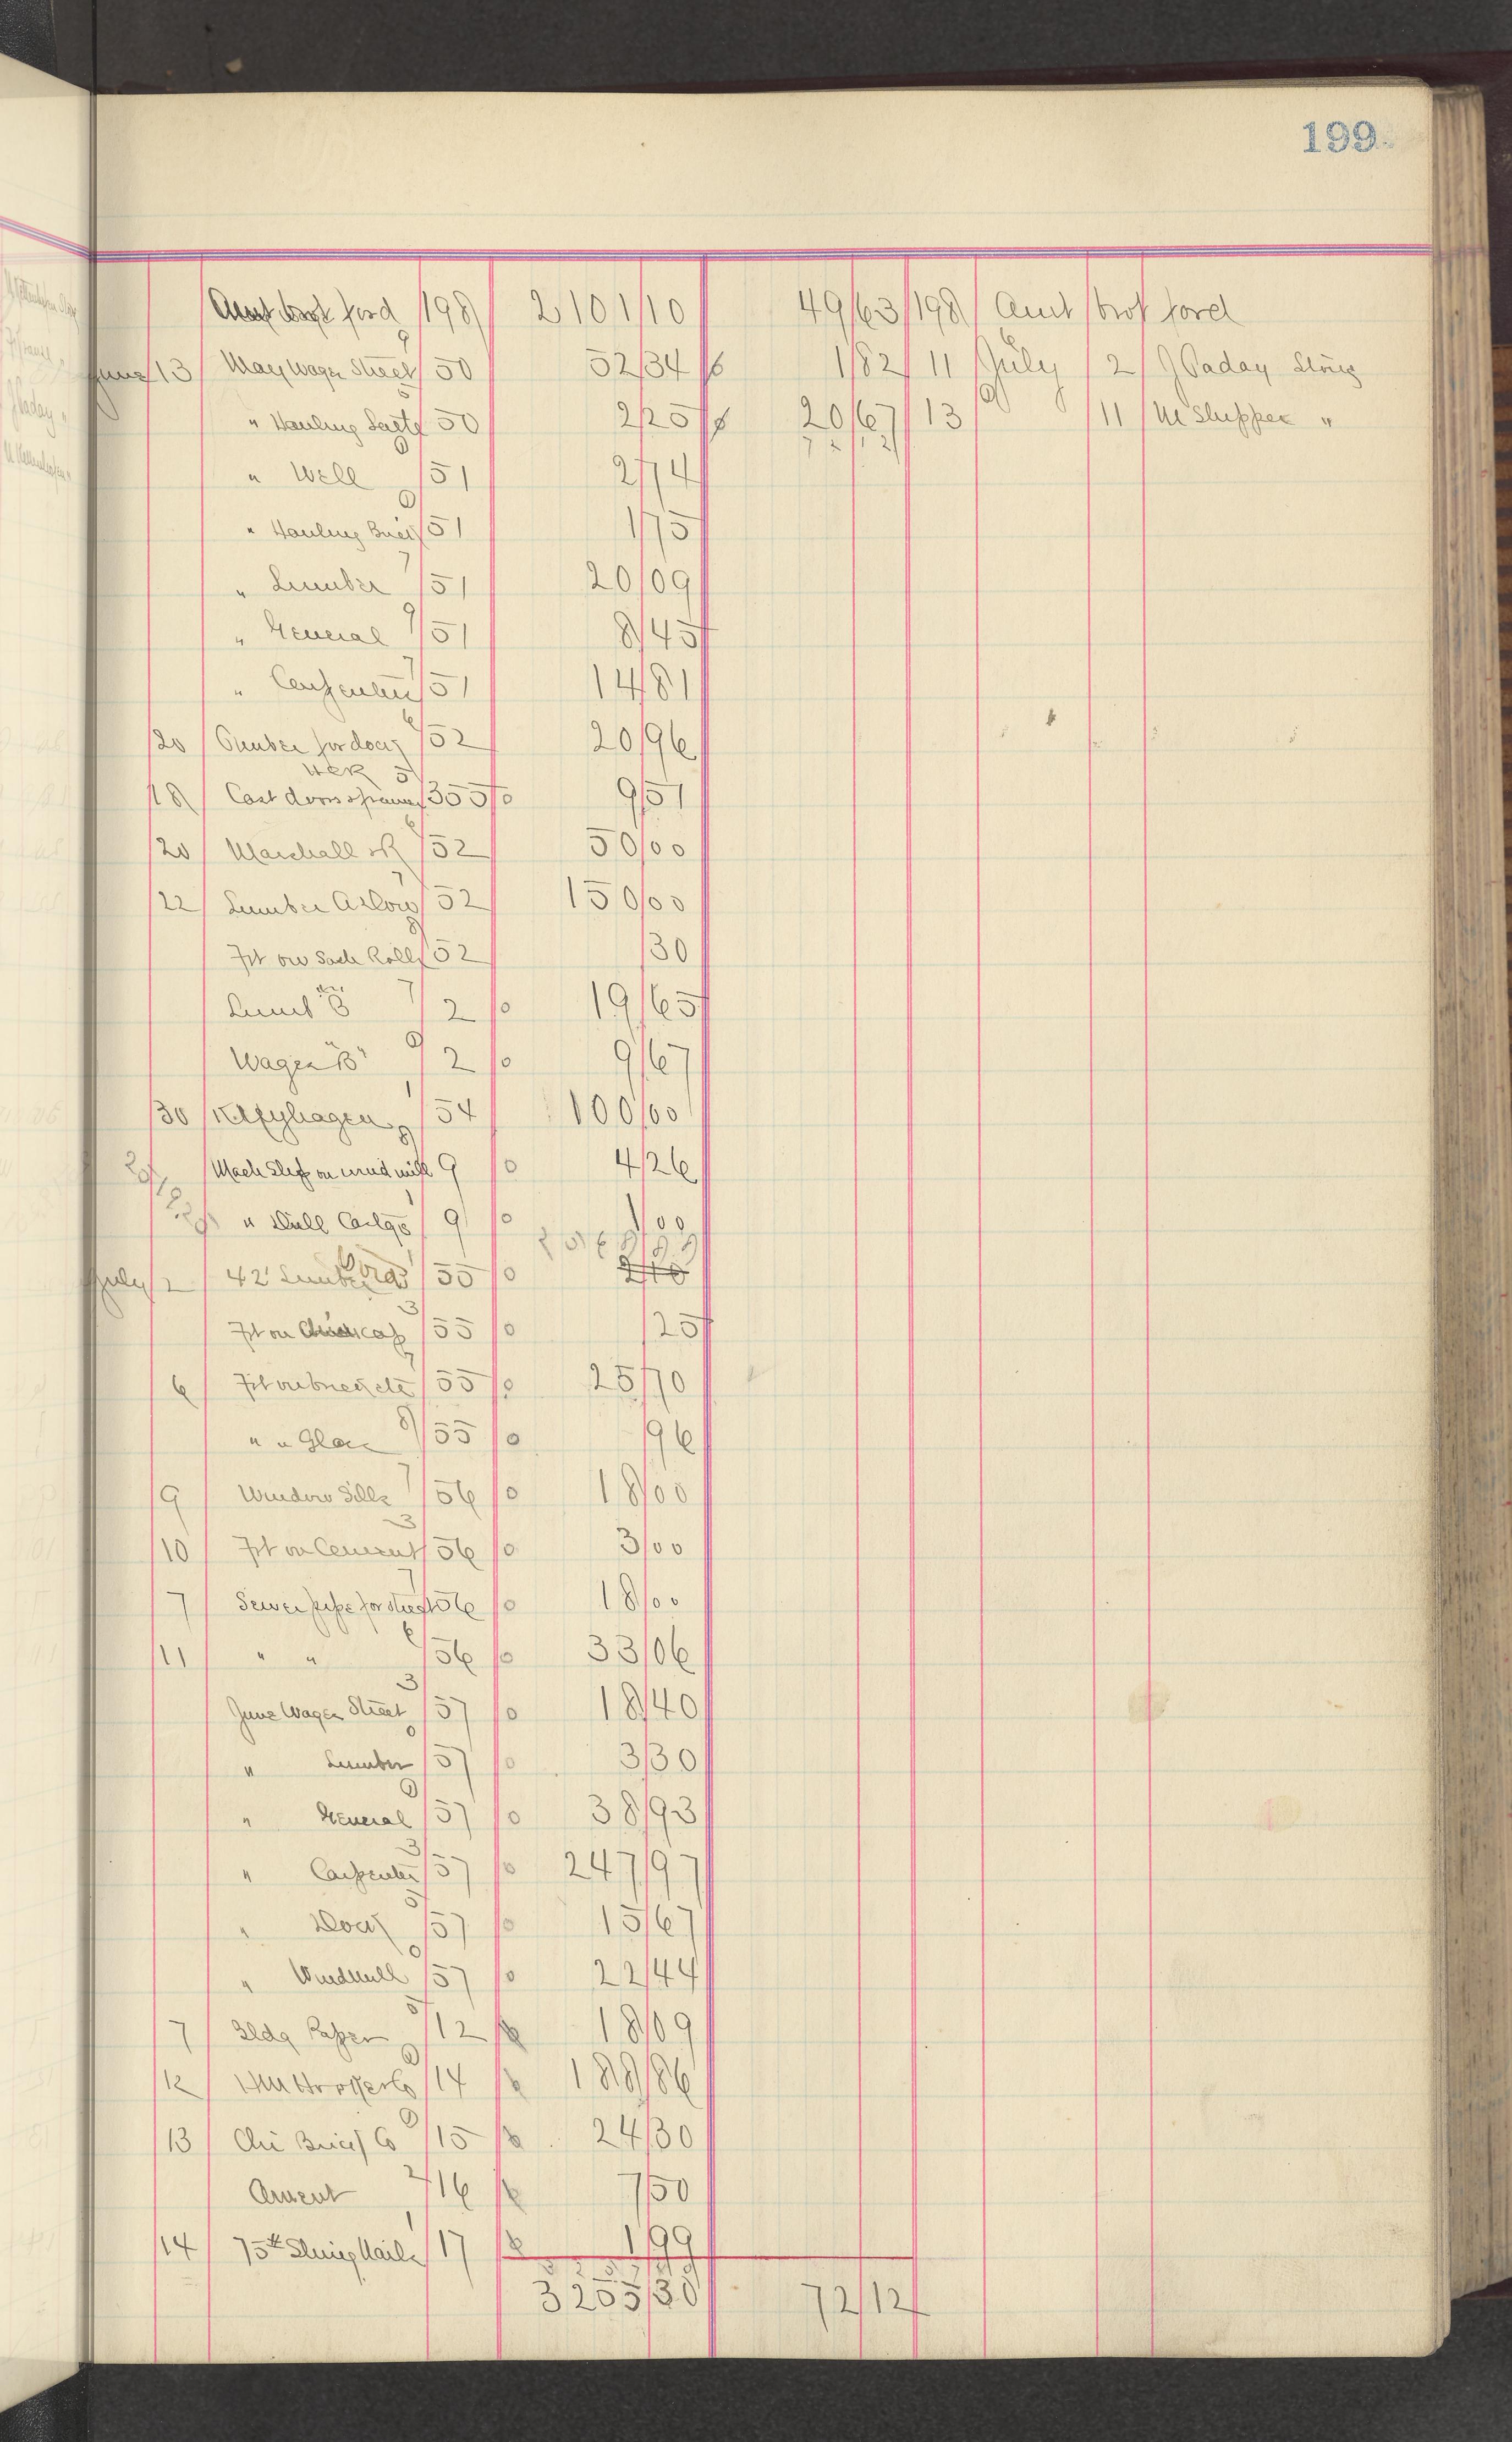 199
Amt brot ford 198 2101/10 49/63 198 Amt brot ford
June 13 May Wages Street 50 52/34 1/82 11 July 2 J Paday Store
" Hauling 50 2/25 20/67 13 11 "
" Well 51 2/74
" Hauling Brick 51 1/75
" Lumber 51 20/09
" General 51 8/45
" Carpenter 51 14/81
20 for dock 52 20/96
18 Cast doors & frames 355 9/51
20 Marshall 52 50/00
22 Lumber 52 150/00
Frt on Sach Rolls 52 30
Lumb "B" 2 19/65
Wages "B" 2 9/67
30 54 100/00
Mach Shop on wind mill 9 4/26
" Drill 9 1/00
2568 88
July 2 42' Lumber 55 2/10
Frt on cap 55 25
6 Frt on brick etc 55 25/70
" " Glass 55 96
9 Window Sills 56 18/00
10 Frt on Cement 56 3/00
7 Sewer pipe for street 56 18/00
11 " " 56 33/06
June Wages Street 57 18/40
" Lumber 57 3/30
" General 57 38/93
" Carpenter 57 247/97
" Dock 57 15/67
" Windmill 57 22/44
7 Bldg Paper 12 18/09
12 HM Hooker Co 14 188/86
13 Chi Brick Co 15 24/30
Ament 16 7/50
14 75# Shing Nails 17 1/99
3255/30 72/12